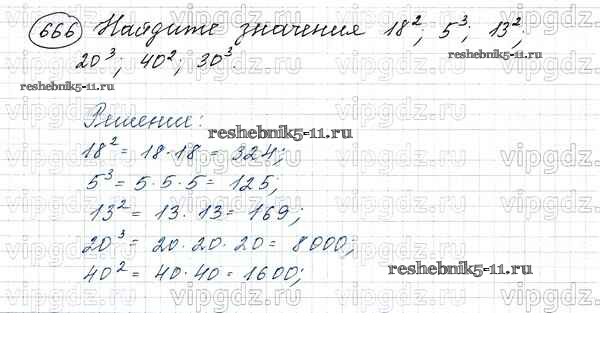 666 Найдите значения 18²; 5³; 13²;
20³; 40²; 30³.
reshebnik5-11.ru
Решение:
reshebnik5-11.ru
18² = 18·18 = 324;
5³ = 5·5·5 = 125;
13² = 13·13 = 169;
20³ = 20·20·20 = 8000;
40² = 40·40 = 1600;
reshebnik5-11.ru
vipgdz.ru